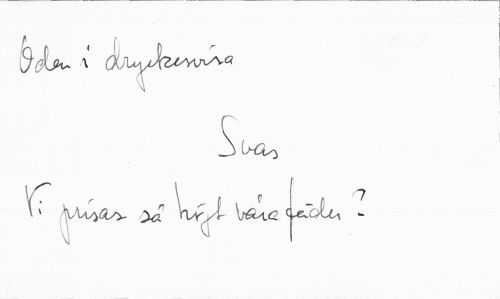 Oden i dryckesvisa
Svas
Vi prisas så högt våra fäder?